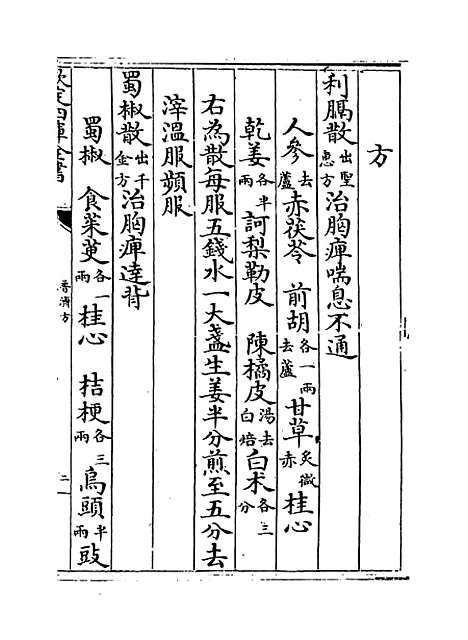 方
利膈散出聖惠方治胸痺喘息不通
人參去蘆赤茯苓 前胡各一兩去蘆甘草炙微赤桂心
乾姜各半兩訶梨勒皮 陳橘皮湯去白焙白术各三分
右為散每服五錢水一大盞生姜半分煎至五分去
滓溫服頻服
蜀椒散出千金方治胸痺達背
蜀椒 食茱萸各一兩桂心 桔梗各三兩烏頭半兩豉
欽定四庫全書
普濟方
二